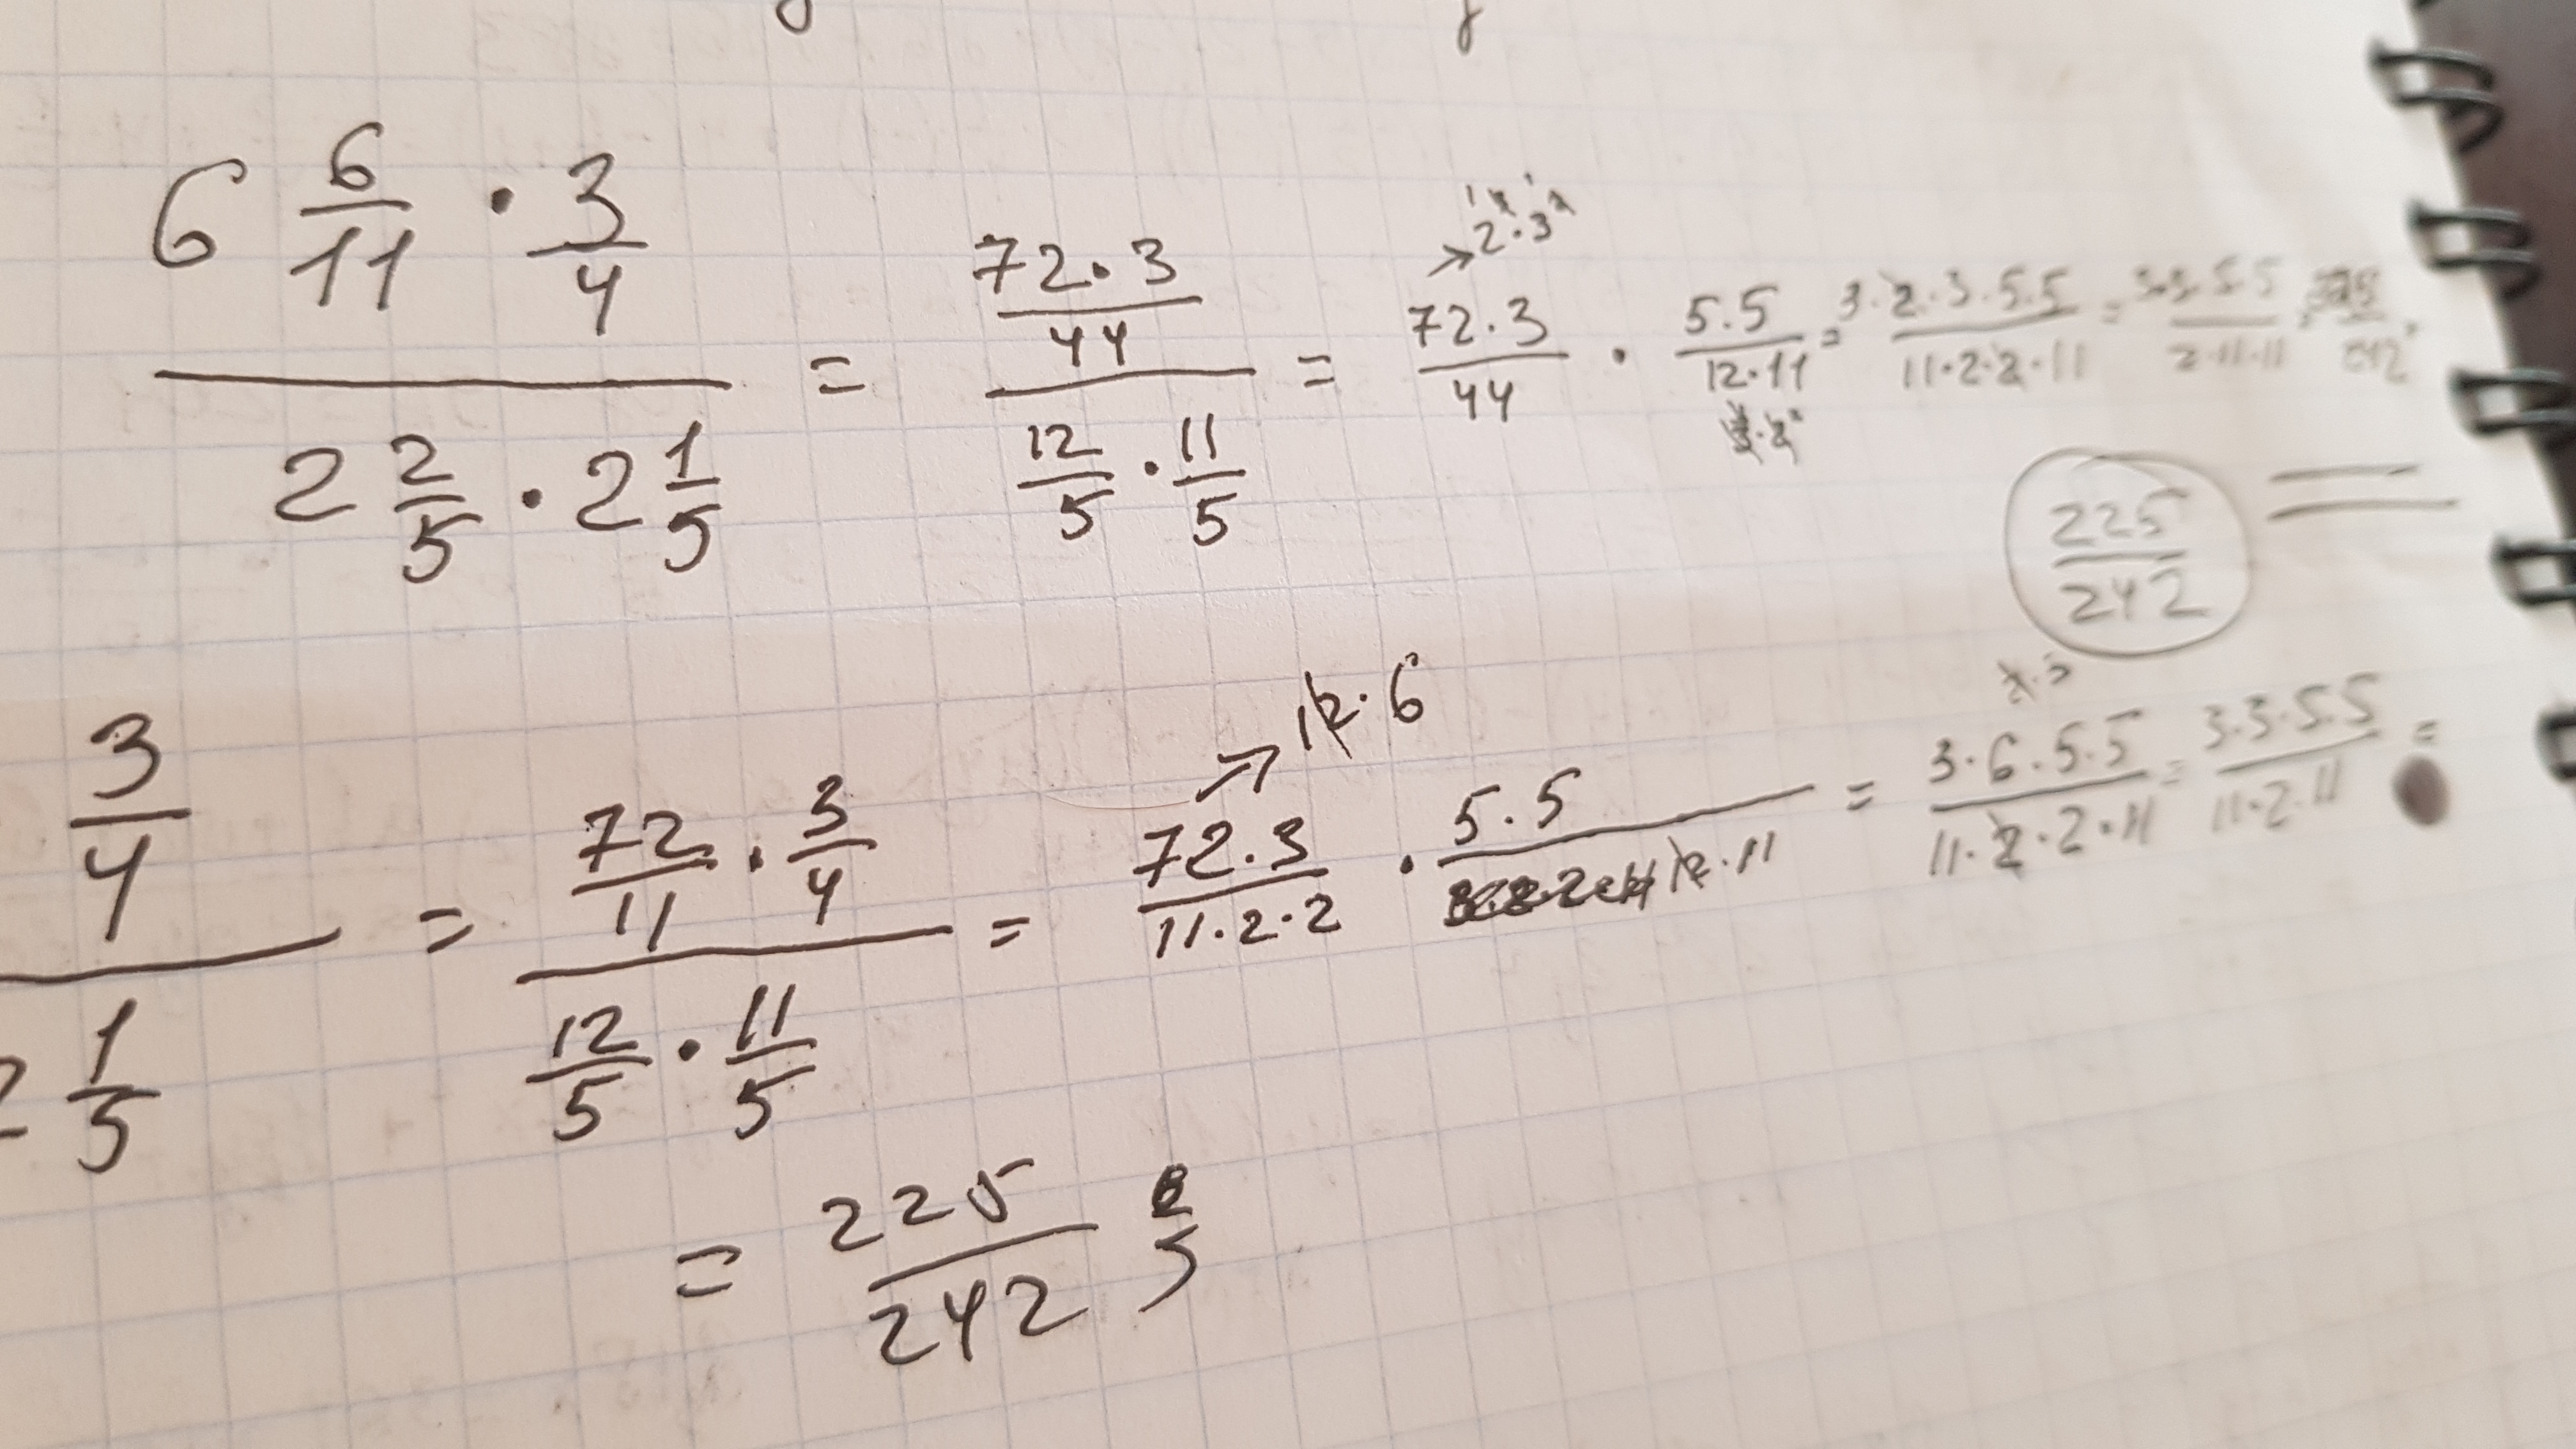 6 6/11 · 3/4 / 2 2/5 · 2 1/5 = 72·3/44 / 12/5 · 11/5 = 72·3/44 · 5·5/12·11 = 3·2·3·5·5/11·2·2·11 = 3·3·5·5/2·11·11
225/242
→ 12·6
3/4 / 2 1/5 = 72/11 · 3/4 / 12/5 · 11/5 = 72·3/11·2·2 · 5·5/12·11 = 3·6·5·5/11·2·2·11 = 3·3·5·5/11·2·11 =
= 225/242